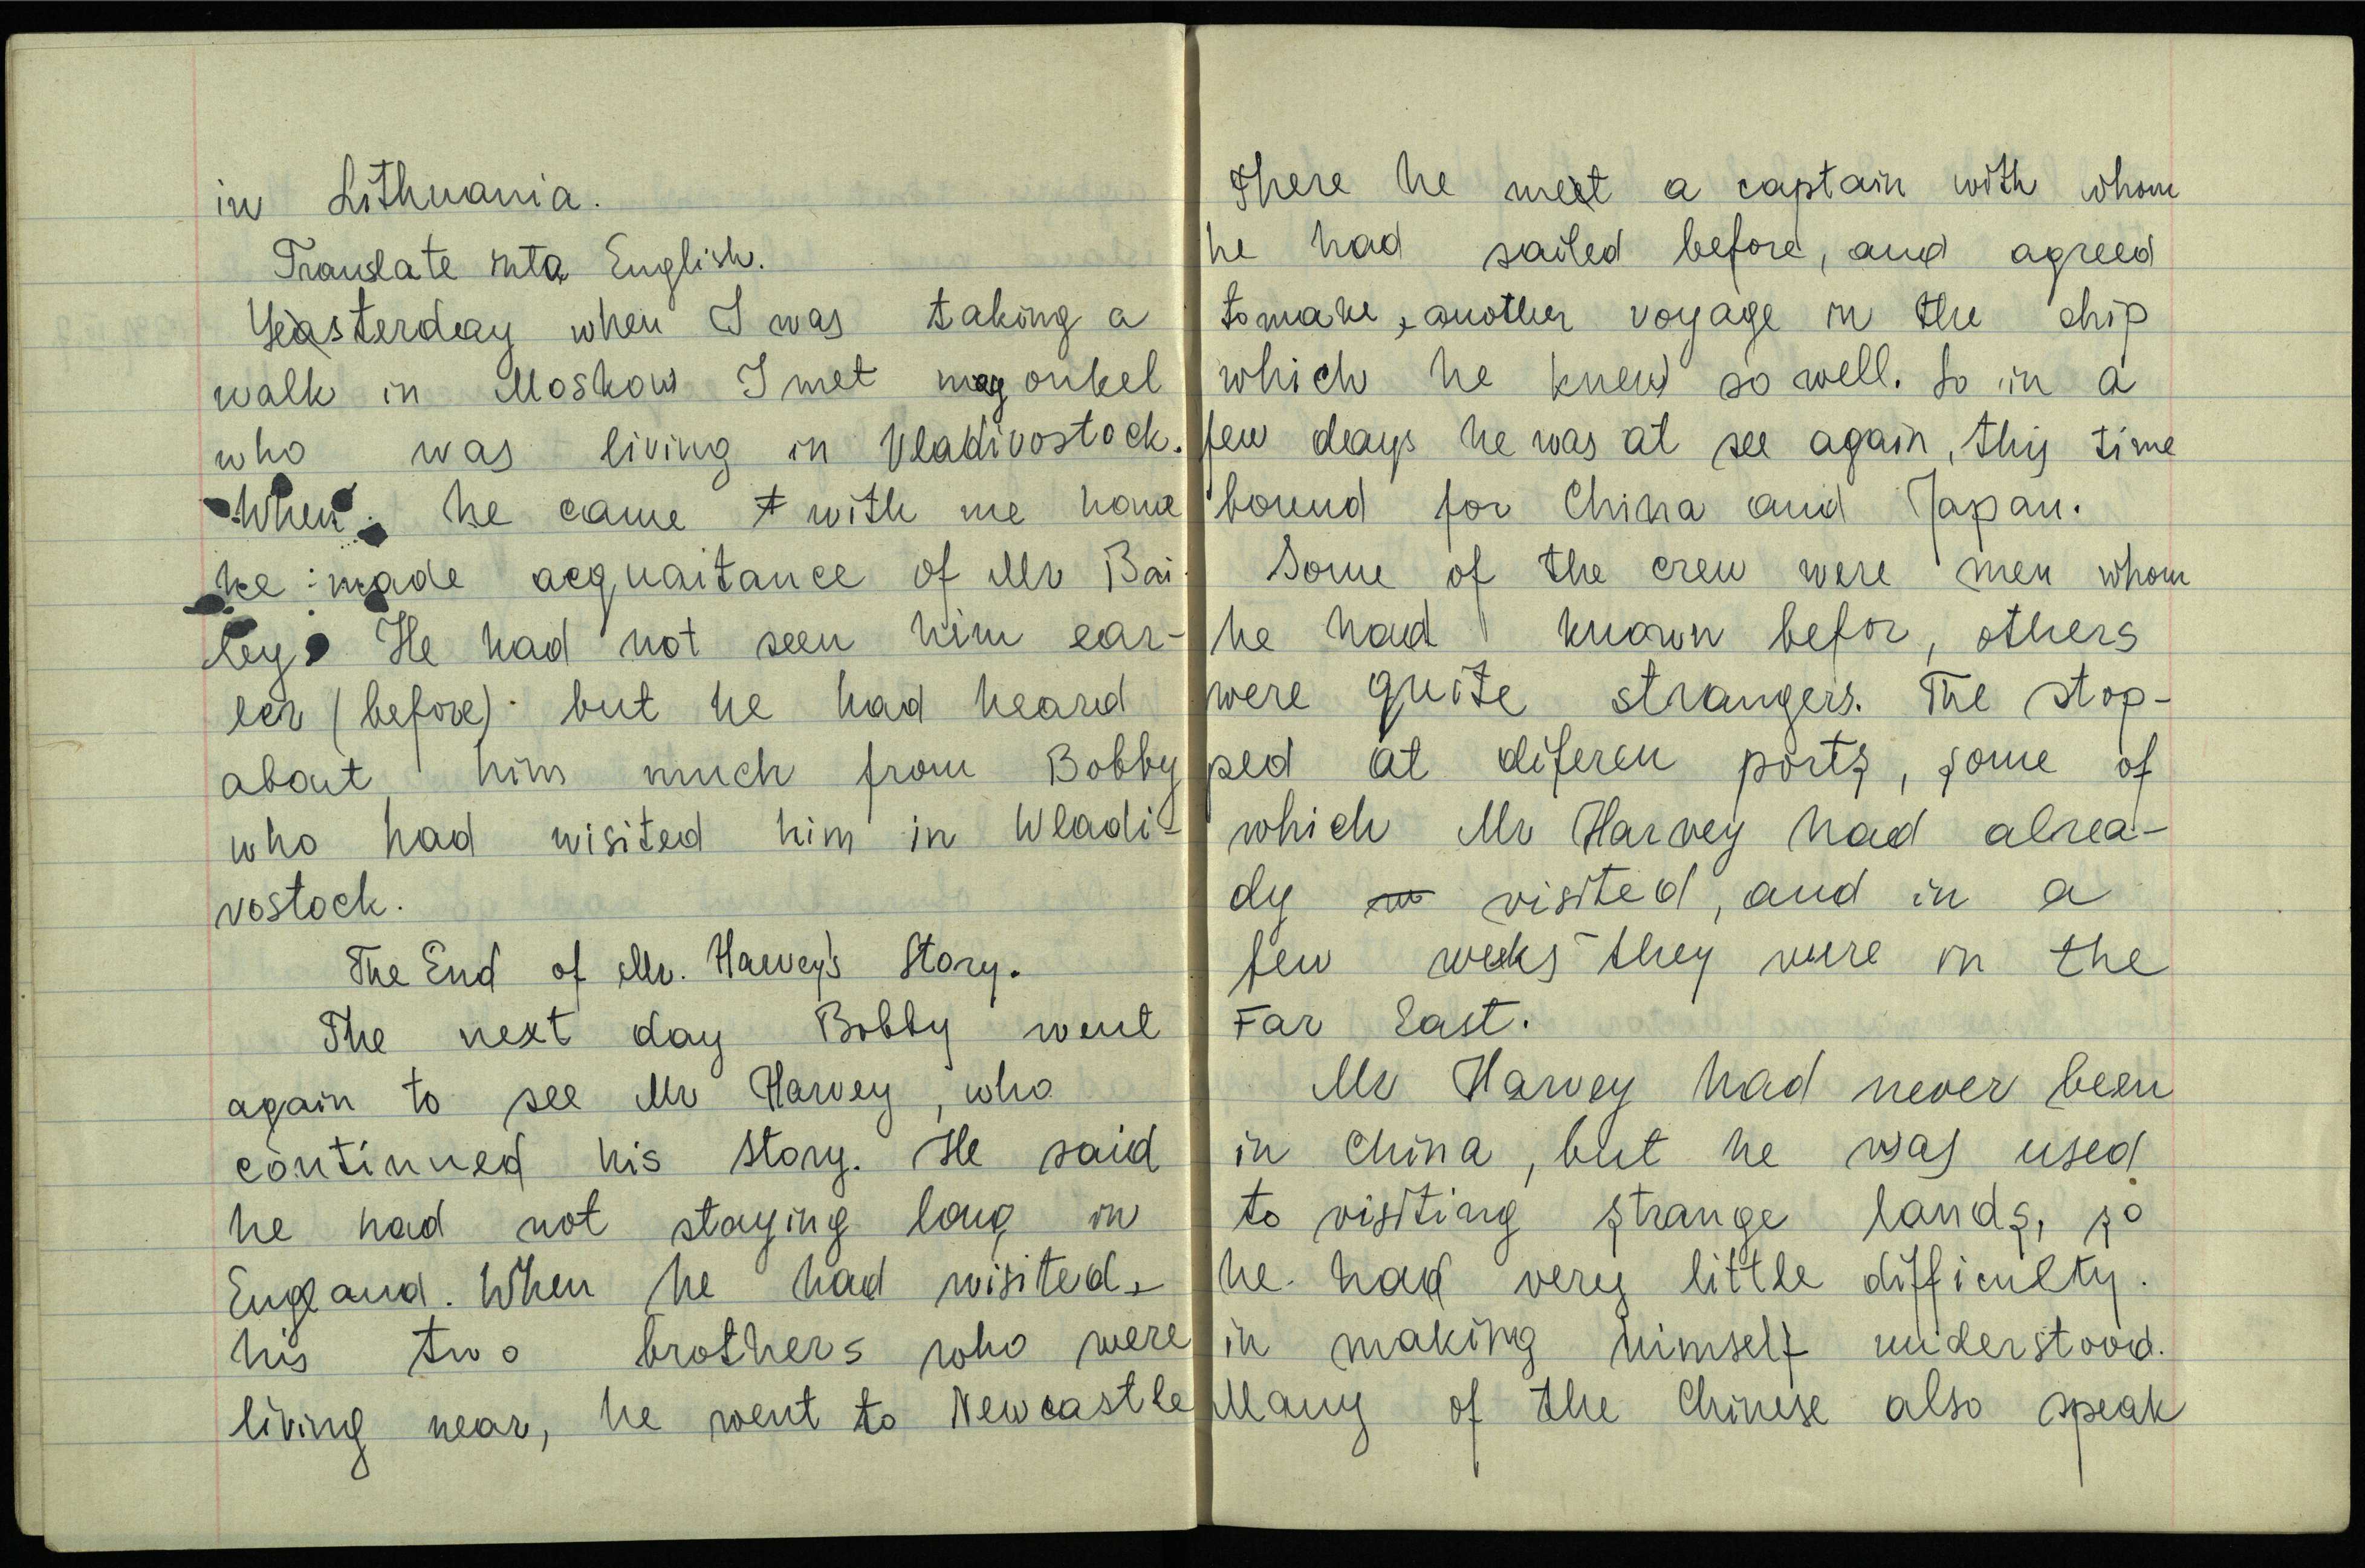 in Lithuania.
Translate into English.
Yeasterday when I was taking a
walk in Moskow I met my onkel
who was living in Vladivostock.
When he came with me home
he made acquaitance of Mr Bai-
ley. He had not seen him ear-
leer (before) but he had heard
about him much from Bobby
who had wisited him in Wladi-
vostock.
The End of Mr. Harvey's Story.
The next day Bobby went
again to see Mr Harvey, who
continued his story. He said
he had not staying long in
England. When he had wisited
his two brothers who were
living near, he went to Newcastle
There he met a captain with whom
he had sailed before, and agreed
to make another voyage in the ship
which he knew so well. So in a
few days he was at see again, this time
bound for China and Japan.
Some of the crew were men whom
he had known befor, others
were quite strangers. The stop-
ped at diferen ports, some of
which Mr Harvey had alrea-
dy visited, and in a
few weeks they were in the
Far East.
Mr Harvey had never been
in China, but he was used
to visiting strange lands, so
he had very little difficulty.
in making himself understood.
Many of the Chinese also speak